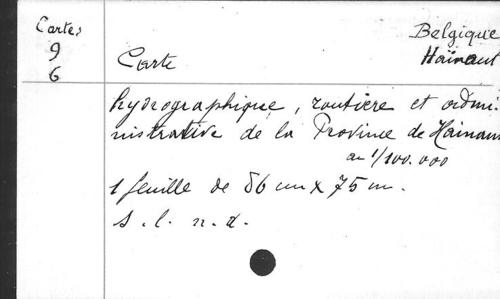 Cartes
9
6
Belgique
Hainaut
Carte
hydrographique, routière et admi-
nistrative de la Province de Hainaut
au 1/100.000
1 feuille de 56 cm x 75 cm.
s. l. n. d.